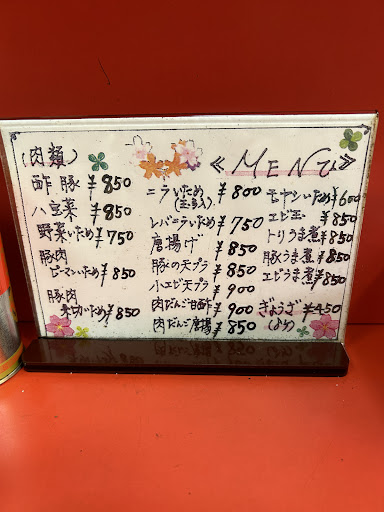 《MENU》
(肉類)
酢豚 ¥850
八宝菜 ¥850
野菜いため ¥750
豚肉
ピーマンいため ¥850
豚肉
朱切いため ¥850
ニラいため ¥800
(玉子入)
レバニラいため ¥750
唐揚げ ¥850
豚の天プラ ¥850
小エビ天プラ ¥900
肉だんご甘酢 ¥900
肉だんご唐揚 ¥850
モヤシいため ¥600
エビ玉 ¥850
トリうま煮 ¥850
豚うま煮 ¥850
エビうま煮 ¥850
ぎょうざ ¥450
(5ケ)